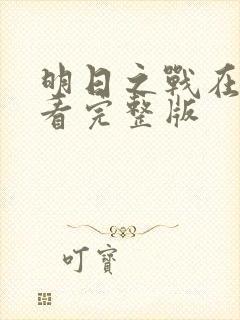 明日之戰在
看完整版
叮寶